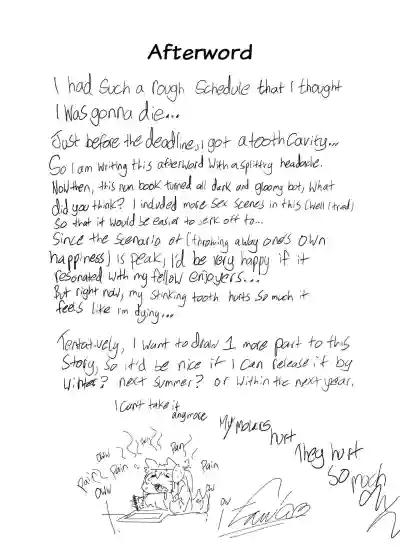 Afterword
I had such a rough schedule that I thought
I was gonna die...
Just before the deadline, I got a tooth cavity...
So I am writing this afterword with a splitting headache.
Now then, this nun book turned all dark and gloomy but, what
did you think? I included more sex scenes in this (well I tried)
so that it would be easier to jerk off to...
Since the scenario of (throwing away one's own
happiness) is peak, I'd be very happy if it
resonated with my fellow enjoyers...
But right now, my stinking tooth hurts so much it
feels like I'm dying...
Tentatively, I want to draw 1 more part to this
story, so it'd be nice if I can release it by
winter? next summer? or within the next year.
I can't take it
anymore
My molars
hurt
They hurt
so much
OW
oww
Pain
Pain
Pain
Pain
Oww
ow
ow